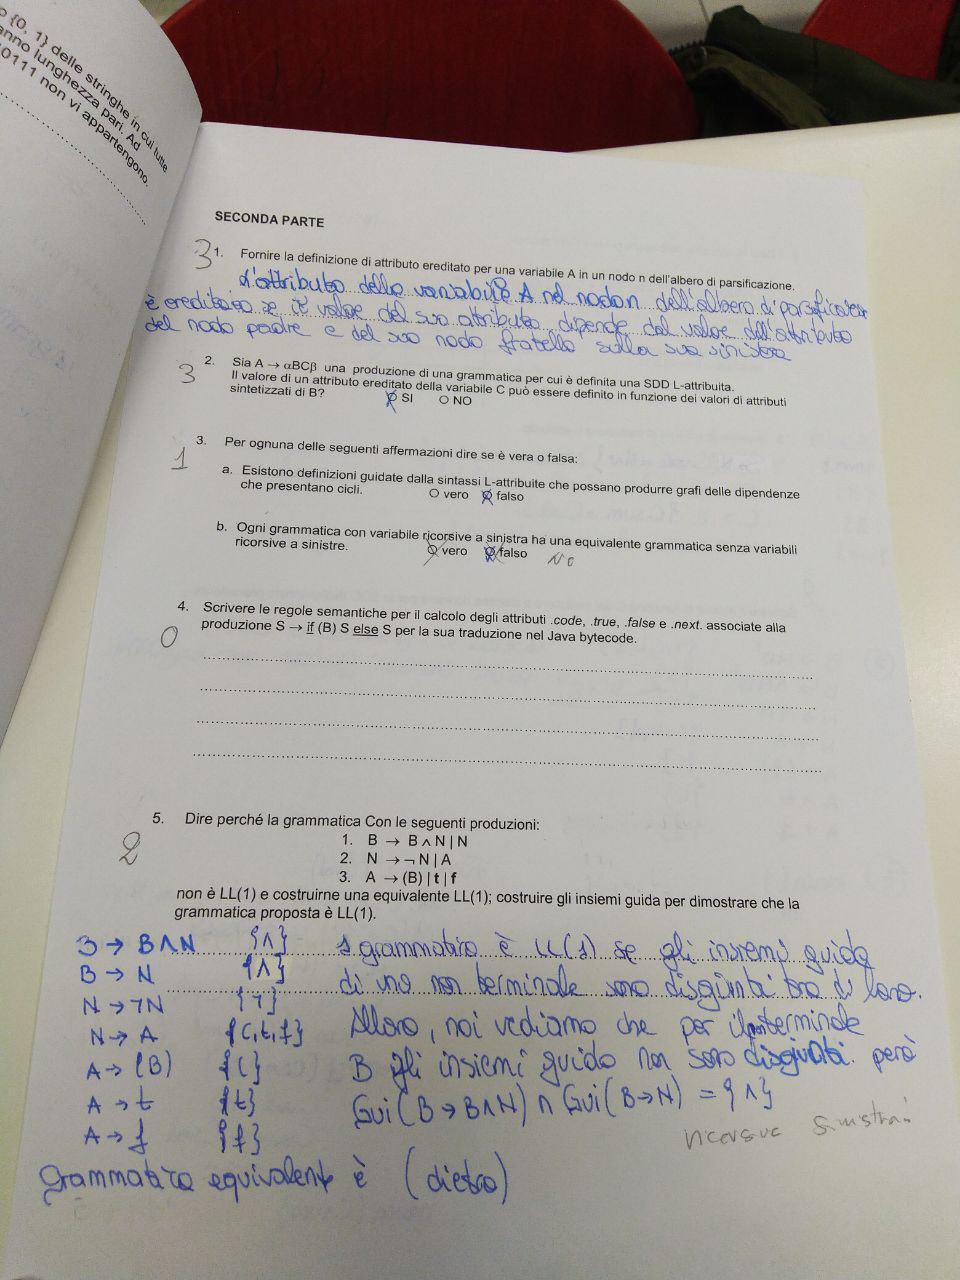 o {0, 1} delle stringhe in cui tutte
anno lunghezza pari. Ad
0111 non vi appartengono.
SECONDA PARTE
3 1. Fornire la definizione di attributo ereditato per una variabile A in un nodo n dell'albero di parsificazione.
L'attributo della variabile A nel nodo n dell'albero di parsificazion
è ereditato se il valore del suo attributo dipende dal valore dell'attributo
del nodo padre e del suo nodo fratello sulla sua sinistra
3 2. Sia A → αBCβ una produzione di una grammatica per cui è definita una SDD L-attribuita.
Il valore di un attributo ereditato della variabile C può essere definito in funzione dei valori di attributi
sintetizzati di B? SI NO
1 3. Per ognuna delle seguenti affermazioni dire se è vera o falsa:
a. Esistono definizioni guidate dalla sintassi L-attribuite che possano produrre grafi delle dipendenze
che presentano cicli. vero falso
b. Ogni grammatica con variabile ricorsive a sinistra ha una equivalente grammatica senza variabili
ricorsive a sinistre. vero falso No
0 4. Scrivere le regole semantiche per il calcolo degli attributi .code, .true, .false e .next. associate alla
produzione S → if (B) S else S per la sua traduzione nel Java bytecode.
2 5. Dire perché la grammatica Con le seguenti produzioni:
1. B → B ∧ N | N
2. N → ¬ N | A
3. A → (B) | t | f
non è LL(1) e costruirne una equivalente LL(1); costruire gli insiemi guida per dimostrare che la
grammatica proposta è LL(1).
B → B∧N {∧} grammatica è LL(1) se gli insiemi guida
B → N {∧} di uno non terminale sono disgiunti tra di loro.
N → ¬N {¬} Allora, noi vediamo che per il non terminale
N → A {(,t,f} B gli insiemi guida non sono disgiunti però
A → (B) {(} Gui(B→B∧N) ∩ Gui(B→N) = {∧}
A → t {t} ricorsiva sinistra!
A → f {f}
Grammatica equivalente è (dietro)